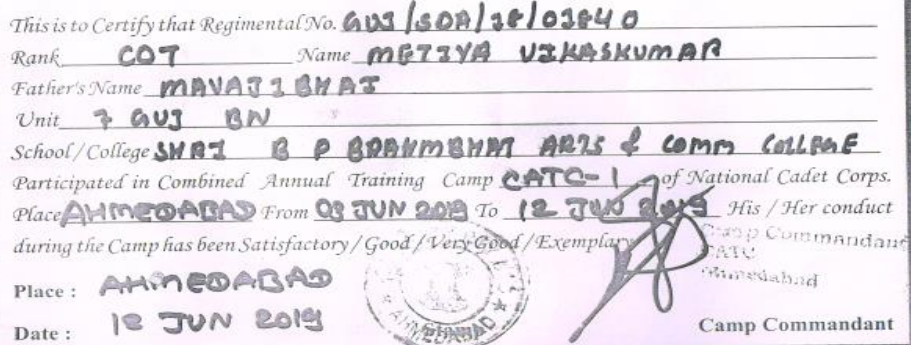 This is to Certify that Regimental No. GUJ/SDA/18/01840
Rank CDT Name METIYA VIKASKUMAR
Father's Name MAVAJIBHAI
Unit 7 GUJ BN
School/College SHRI B P BRAHMBHAT ARTS & COMM COLLEGE
Participated in Combined Annual Training Camp CATC-1 of National Cadet Corps.
Place AHMEDABAD From 03 JUN 2019 To 12 JUN 2019 His / Her conduct
during the Camp has been Satisfactory / Good / Very Good / Exemplary
Camp Commandant
CATC
Ahmedabad
Place : AHMEDABAD
AHMEDABAD
Date : 12 JUN 2019
Camp Commandant